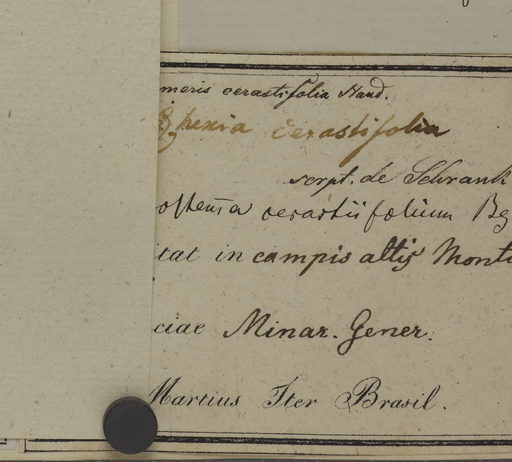 meris cerastifolia Nand.
Physexia cerastifolia
script. de Schrank
ostema cerastiifolium Be
tat in campis altis Monti
ciae Minar. Gener.
Martius Iter Brasil.